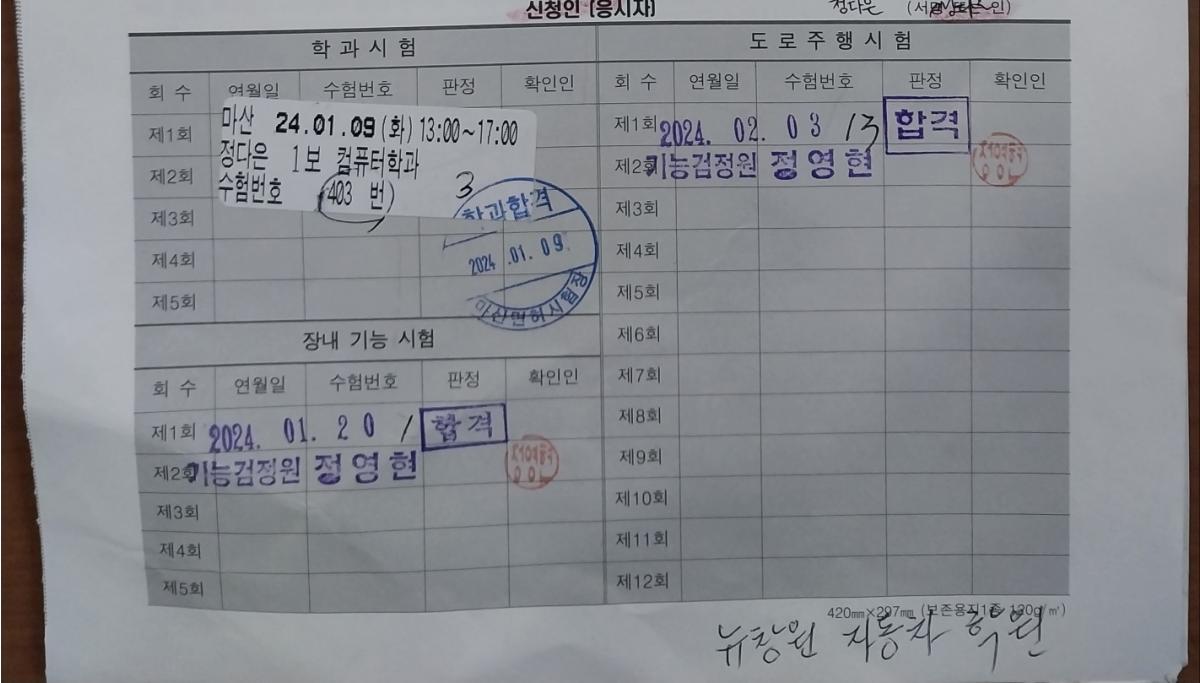 신청인 [응시자] 정다은 (서명 또는 인)
학과시험
회 수 연월일 수험번호 판정 확인인
마산 24.01.09(화) 13:00~17:00
정다은 1보 컴퓨터학과
수험번호 (403 번)
3
제1회
제2회
제3회
제4회
제5회
학과합격
2024 .01. 09.
마산면허시험장
장내 기능 시험
회 수 연월일 수험번호 판정 확인인
제1회 2024. 01. 20 / 합격
제2회 기능검정원 정영현
제3회
제4회
제5회
도로주행시험
회 수 연월일 수험번호 판정 확인인
제1회 2024. 02. 03 /3 합격
제2회 기능검정원 정영현
제3회
제4회
제5회
제6회
제7회
제8회
제9회
제10회
제11회
제12회
420㎜×297㎜ (보존용지1종 120g/㎡)
뉴창원 자동차 학원